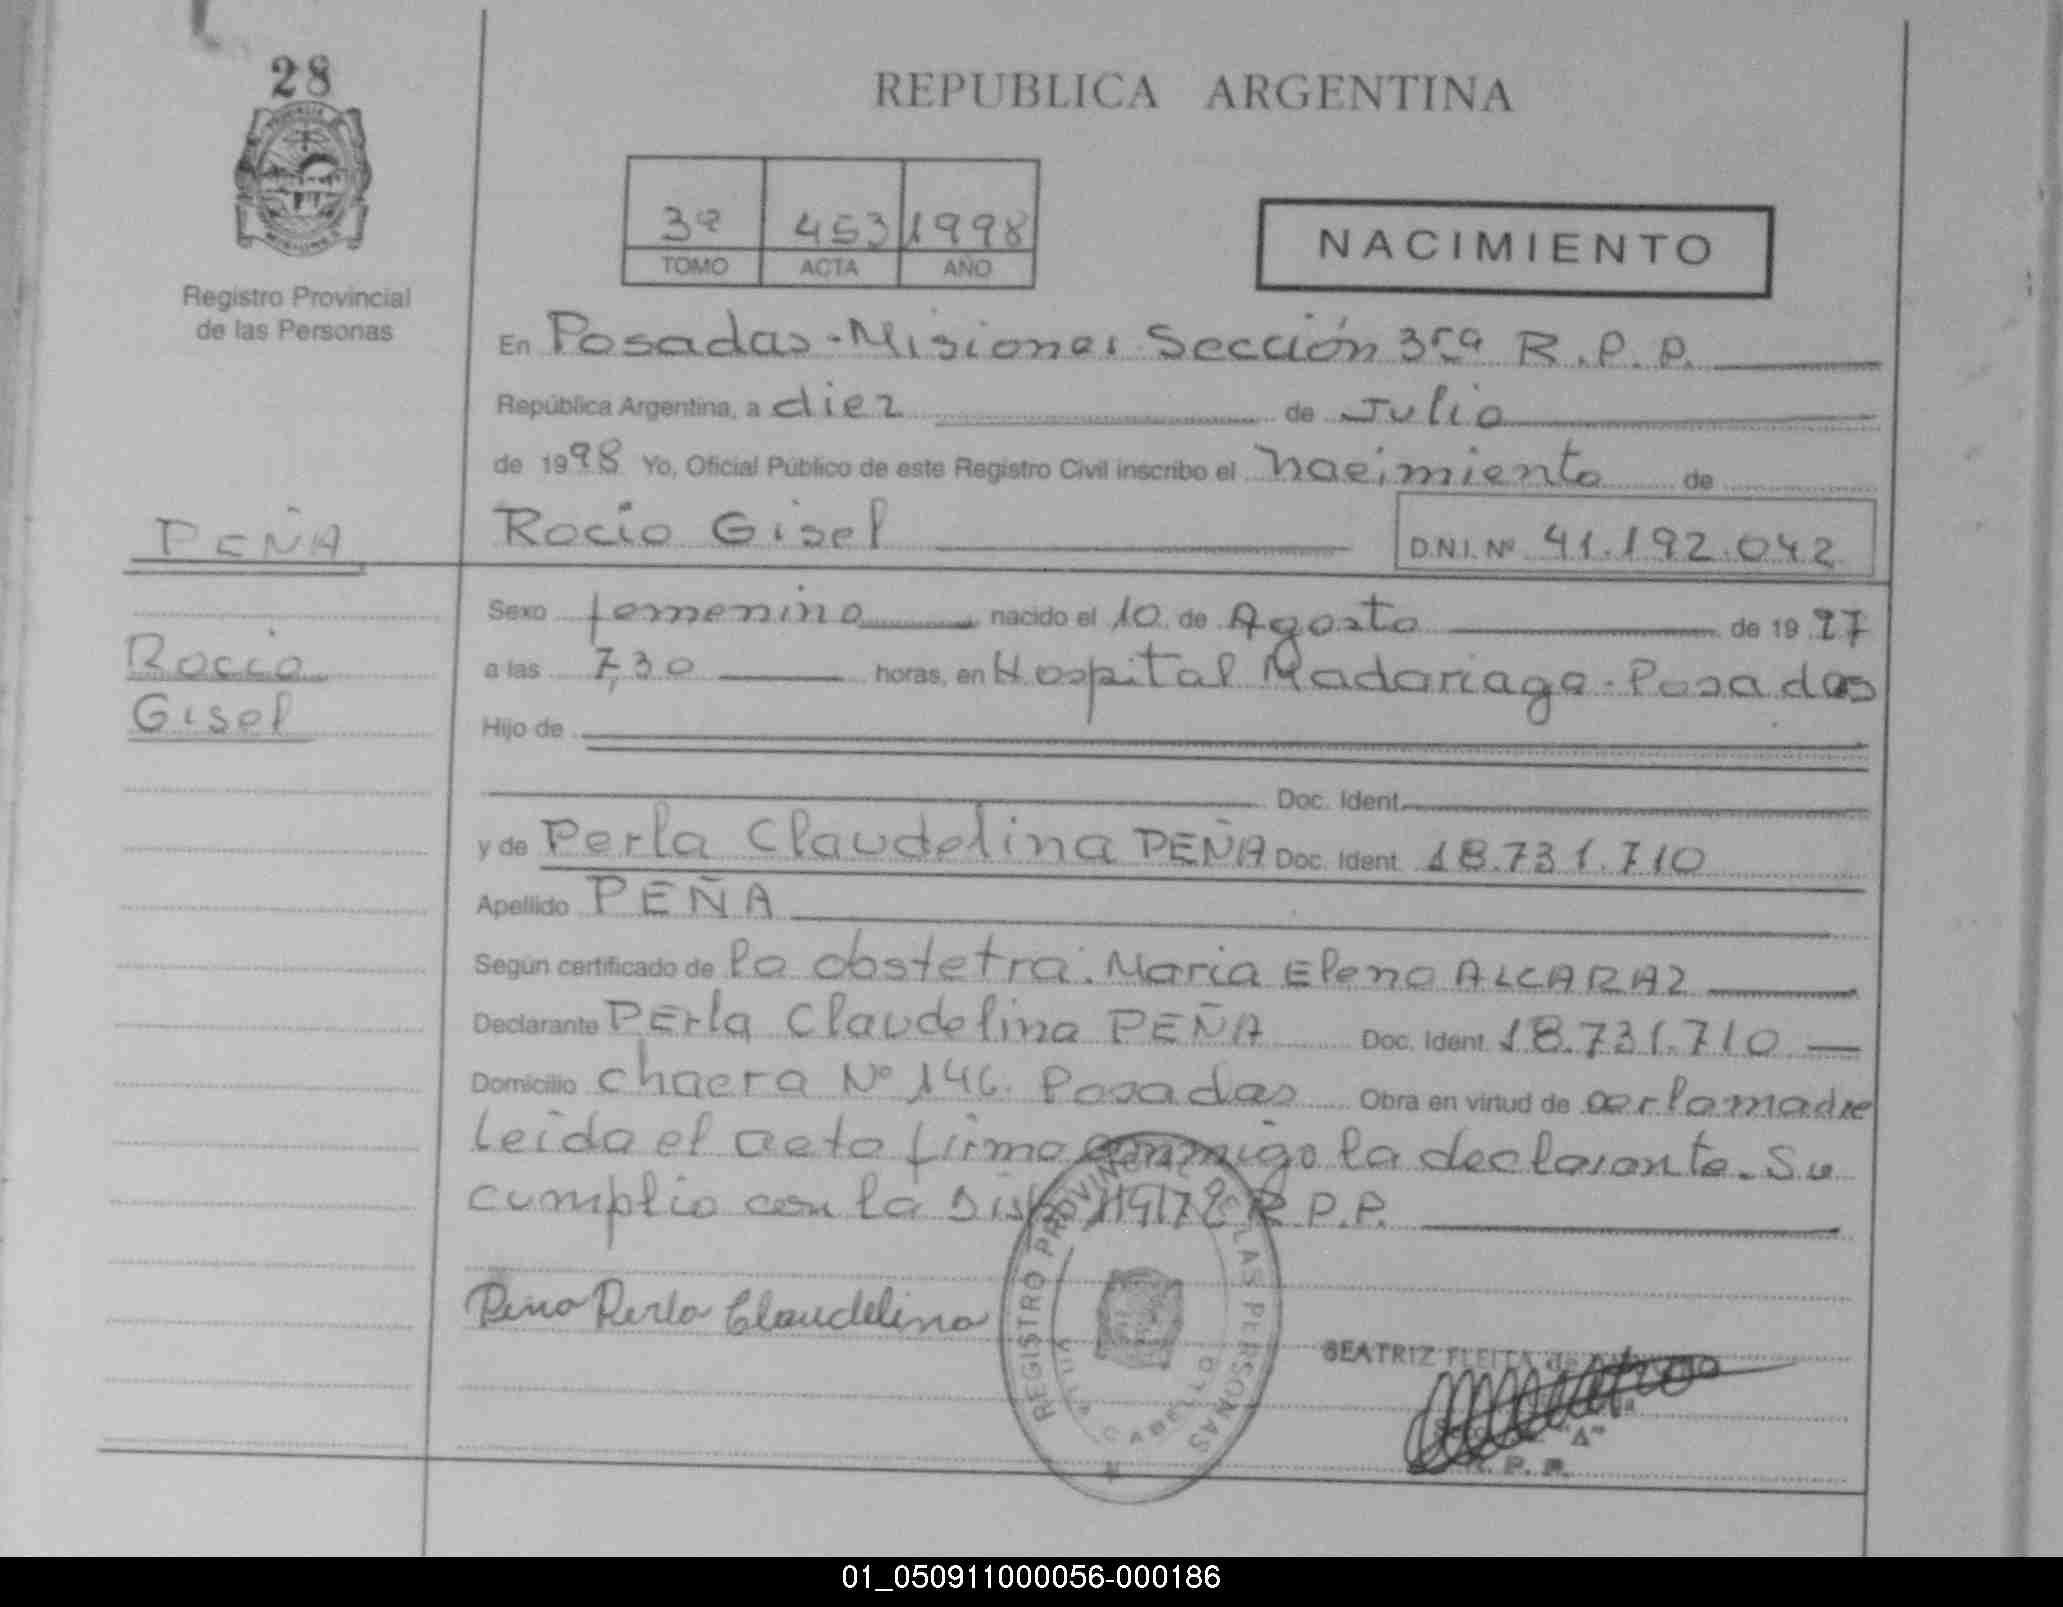 28
REPUBLICA ARGENTINA
3º 453 1998
TOMO ACTA AÑO
NACIMIENTO
Registro Provincial
de las Personas
En Posadas - Misiones Sección 3ra R.P.P.
República Argentina, a diez de Julio
de 1998 Yo, Oficial Público de este Registro Civil inscribo el nacimiento de
PEÑA
Rocio Gisel D.N.I. Nº 41.192.042
Sexo femenino nacido el 10 de Agosto de 1997
Rocio
a las 7,30 horas, en Hospital Madariaga - Posadas
Gisel
Hijo de
Doc. Ident.
y de Perla Claudelina PEÑA Doc. Ident. 18.731.710
Apellido PEÑA
Según certificado de la obstetra. Maria Elena ALCARAZ
Declarante PErla Claudelina PEÑA Doc. Ident. 18.731.710
Domicilio chacra Nº 146. Posadas Obra en virtud de ser la madre
Leida el acta firma conmigo la declarante. Se
cumplio con la Disp. 119/72 R.P.P.
Peña Perla Claudelina
REGISTRO PROVINCIAL DE LAS PERSONAS
VILLA CABELLO
BEATRIZ FLEITA de
"A"
R. P. P.
01_050911000056-000186